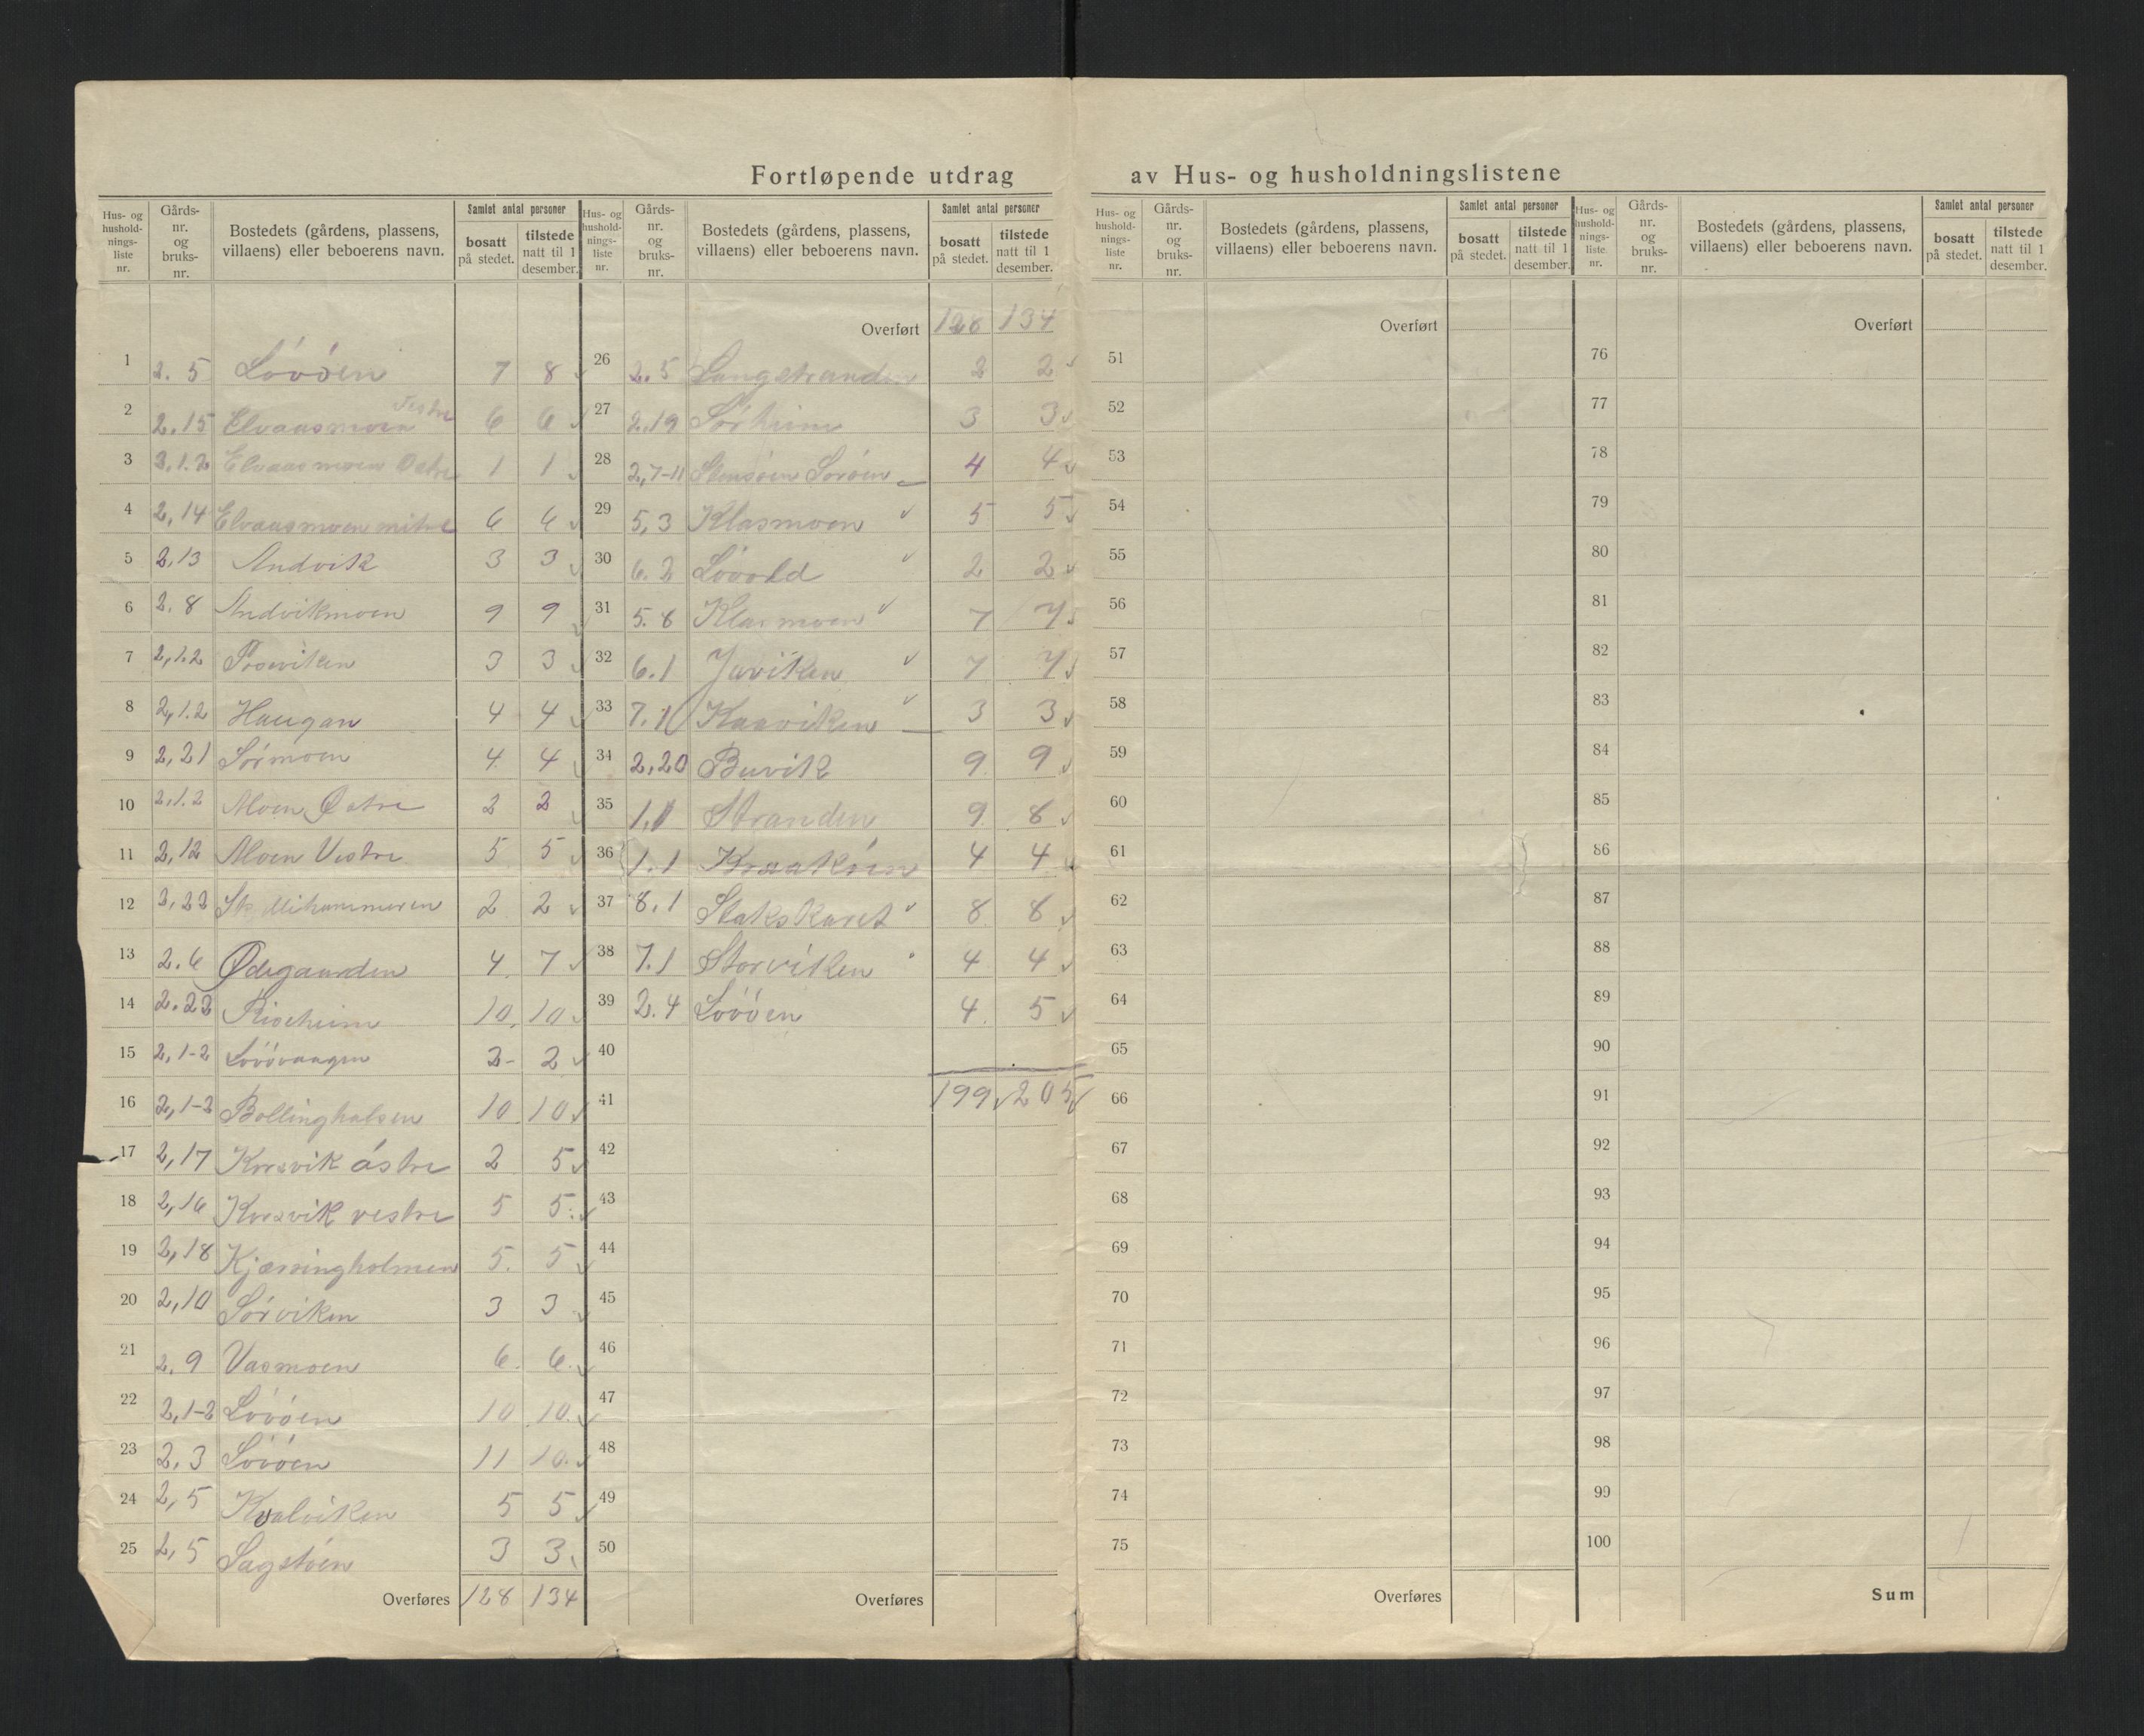 Fortløpende utdrag av Hus- og husholdningslistene
Hus- og hushold- nings- liste nr. | Gårds- nr. og bruks- nr. | Bostedets (gårdens, plassens, villaens) eller beboerens navn. | Samlet antal personer | bosatt på stedet. | tilstede natt til 1 desember.
1 2.5 Lóvóen 7 8
2 2.15 Elvaasmoen Vestre 6 6
3 2.1.2 Elvaasmoen Østre 1 1
4 2,14 Elvaasmoen mitre 6 6
5 2,13 Andvik 3 3
6 2.8 Andvikmoen 9 9
7 2,1.2 3 3
8 2,1.2 Haugan 4 4
9 2,21 Sórmoen 4 4
10 2,1.2 Moen Østre 2 2
11 2,12 Moen Vestre 5 5
12 2,22 2 2
13 2.6 Ødegaarden 4 7
14 2.23 Risheim 10 10
15 2,1-2 Lóvóvaagen 2- 2
16 2,1-2 Bollinghalsen 10 10
17 2,17 Korsvik óstre 2 5
18 2,16 Korsvik vestre 5 5
19 2,18 Kjærringholmen 5. 5
20 2,10 Sórviken 3 3
21 2.9 Vasmoen 6. 6.
22 2,1-2 Lóvóen 10 10.
23 2.3 Lóvóen 11 10.
24 2,5 Kvalviken 5 5
25 2,5 Sagstóen 3 3
Overføres 128 134
Hus- og hushold- nings- liste nr. | Gårds- nr. og bruks- nr. | Bostedets (gårdens, plassens, villaens) eller beboerens navn. | Samlet antal personer | bosatt på stedet. | tilstede natt til 1 desember.
Overført 128 134
26 2.5 Langstranden 2 2
27 2.19 Sórheim 3 3
28 2,7-11 4 4
29 5,3 Klasmoen 5 5
30 6.2 Lóvold 2 2
31 5.8 Klasmoen 7 7
32 6.1 Javiken 7 7
33 7.1 Kaaviken 3 3
34 2.20 Buvik 9 9
35 1.1 Stranden 9 8
36 1.1 Kraakóen 4 4
37 8.1 Slakskaret 8 8
38 7.1 Storviken 4 4
39 2.4 Lóvóen 4 5
40
41 199 205
42
43
44
45
46
47
48
49
50
Overføres
Hus- og hushold- nings- liste nr. | Gårds- nr. og bruks- nr. | Bostedets (gårdens, plassens, villaens) eller beboerens navn. | Samlet antal personer | bosatt på stedet. | tilstede natt til 1 desember.
Overført
51
52
53
54
55
56
57
58
59
60
61
62
63
64
65
66
67
68
69
70
71
72
73
74
75
Overføres
Hus- og hushold- nings- liste nr. | Gårds- nr. og bruks- nr. | Bostedets (gårdens, plassens, villaens) eller beboerens navn. | Samlet antal personer | bosatt på stedet. | tilstede natt til 1 desember.
Overført
76
77
78
79
80
81
82
83
84
85
86
87
88
89
90
91
92
93
94
95
96
97
98
99
100
Sum